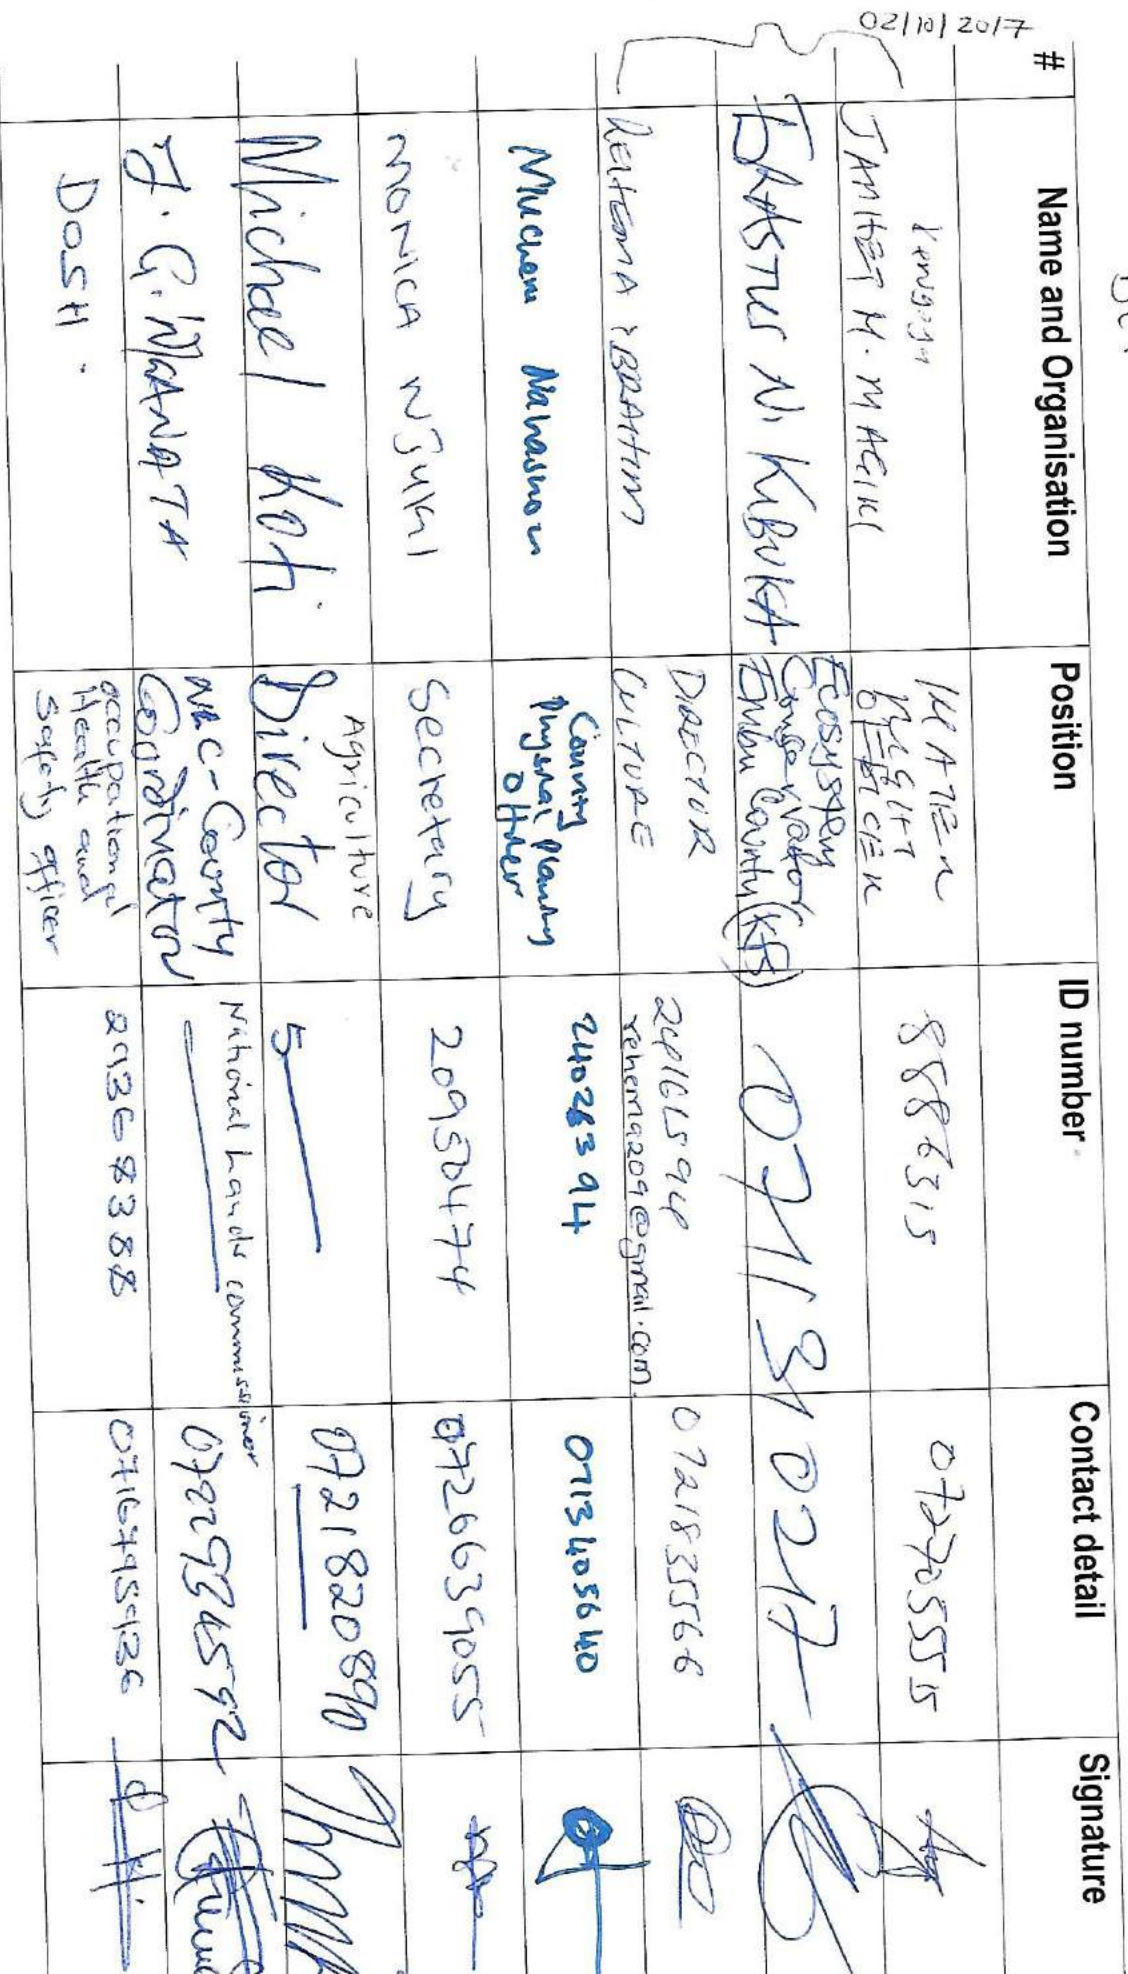 02/10/2017
# Name and Organisation Position ID number Contact detail Signature
JAMHET M. MAGIKI WATER RIGHT OFFICER 8886315 0727055515
ERASTUS N. KIBUKA Ecosystem Conservator Embu County (KFS) 071131 0217
REHEMA IBRAHIM DIRECTOR CULTURE rehema209@gmail.com. 0721835566
Mucheni Nahashon County Physical Planning Officer 240263394 0713405640
MONICA NJUKI Secretary 209504774 0726639055
Michael Koti Agriculture Director 5 0721820890
J. G. NKANATA NLC-County Coordinator National Lands commissioner 0722934592
DOSH. occupational Health and Safety officer 29368388 0716495936